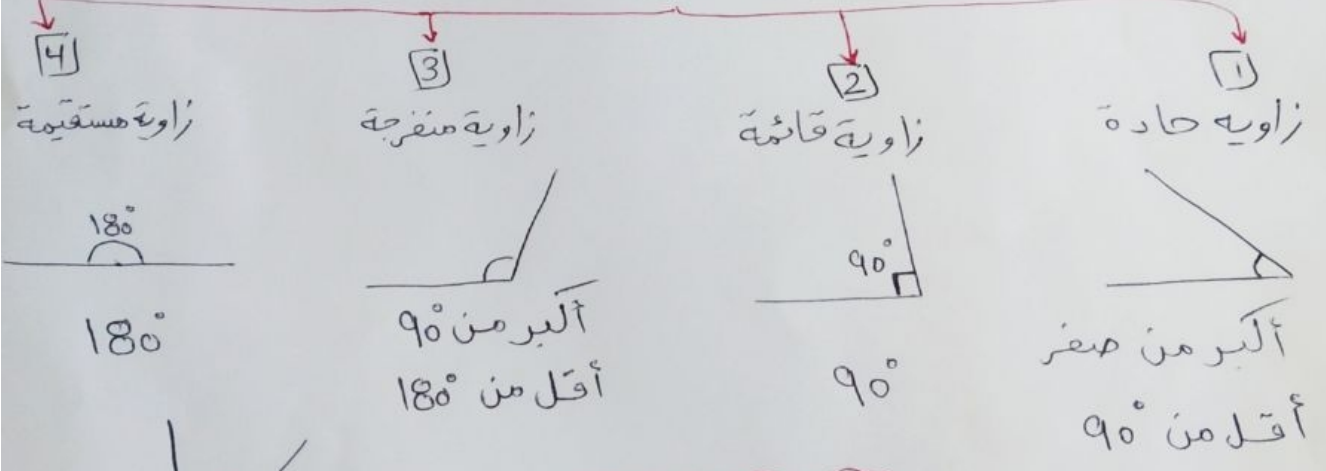 1
زاويه حادة
أكبر من صفر
أقل من 90°
2
زاوية قائمة
90°
90°
3
زاوية منفرجة
أكبر من 90°
أقل من 180°
4
زاوية مستقيمة
180°
180°